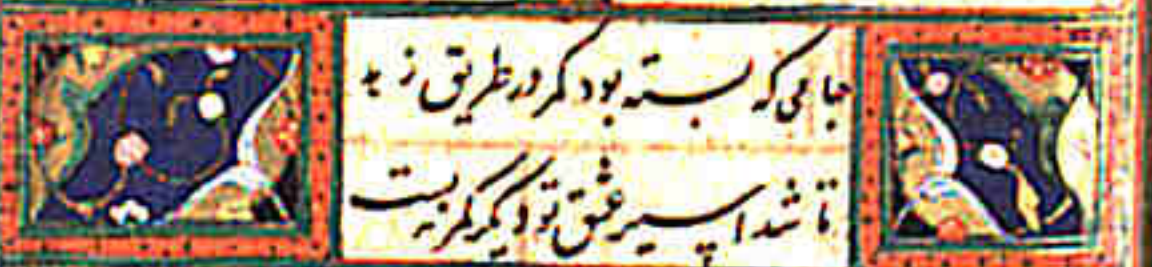 جامی که بسته بود کمر در طریق زهد
تا شد اسیر عشق تو دیگر کمر نبست